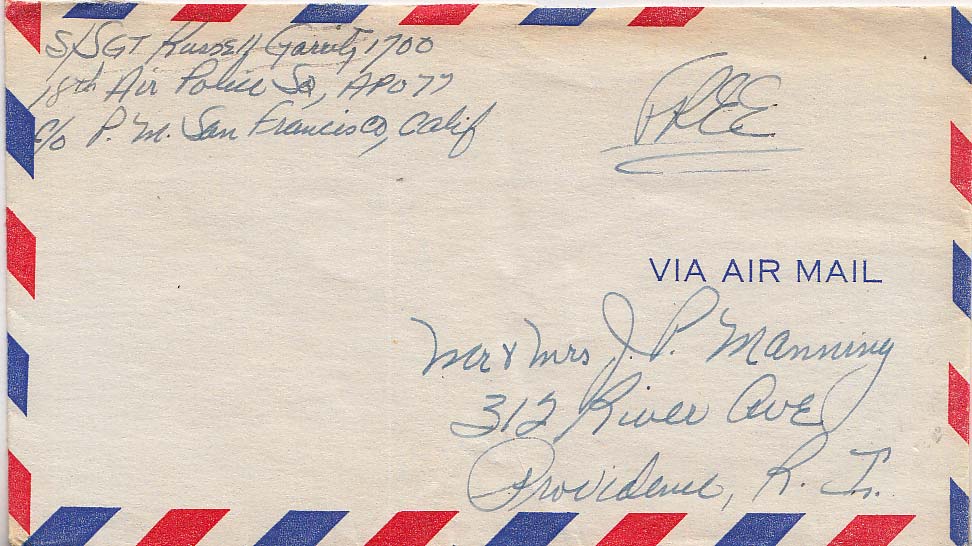 S/SGT Russell
18th Air Police Sq, APO 77
c/o P. M. San Francisco, Calif
FREE
VIA AIR MAIL
Mr & Mrs J. P. Manning
312 River Ave
Providence, R. I.